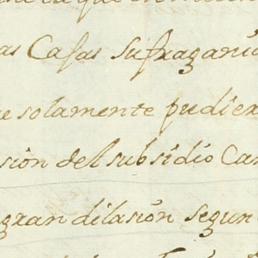 as Casas sufragania
e solamente pudier
sion del subsidio Ca
gran dilasion segun